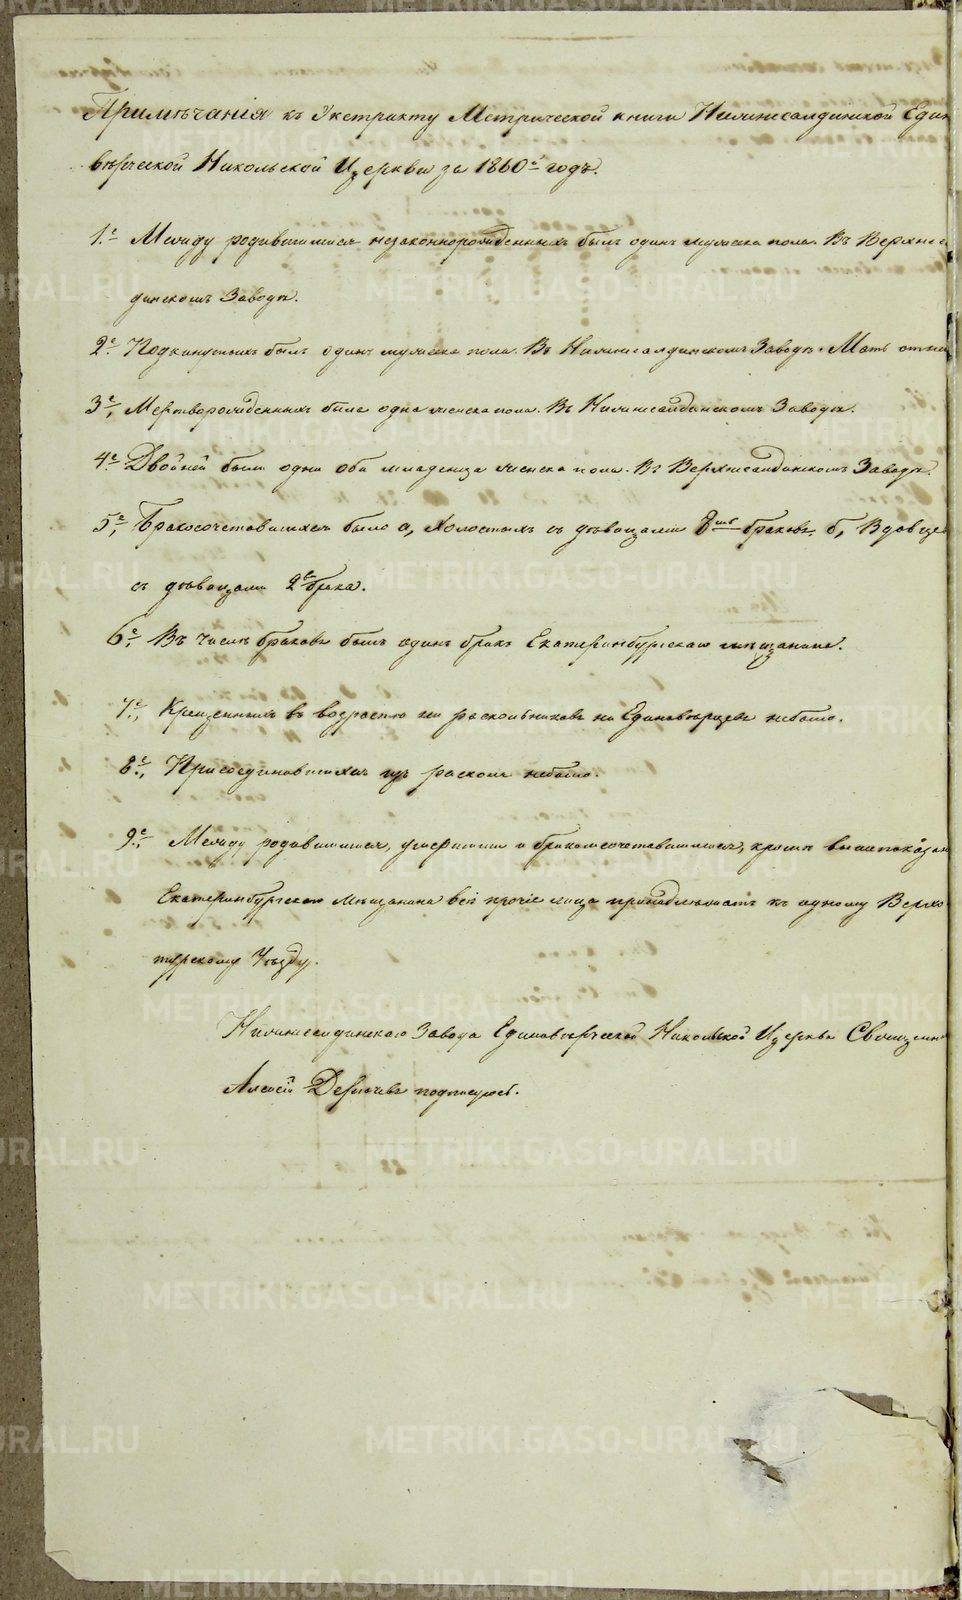 Примѣчанія къ Экстракту Метрической книги Нижнесалдинской Един
вѣрческой Никольской Церкви за 1860й годъ.
1е Между родившимися незаконнорожденныхъ былъ одинъ мужеска пола. Въ Верхнеса
динскомъ Заводѣ.
2е Подкинутыхъ былъ одинъ мужеска пола. Въ Нижнесалдинскомъ Заводѣ. Мать
3е, Мертворожденныхъ была одна женска пола. Въ Нижнесалдинскомъ Заводѣ.
4е Двойней были одни оба младенца женска пола. Въ Верхнесалдинскомъ Заводѣ.
5е, Бракосочетавшихся было а, Холостыхъ съ дѣвицами 8мь браковъ. б, Вдовце
съ дѣвицами 2а брака.
6е, Въ числѣ браковъ былъ одинъ бракъ Екатеринбургскаго мѣщанина.
7е, Крещенныхъ въ возрастѣ изъ раскольниковъ на Единовѣрцевъ небыло.
8е, Присоединившихся изъ раскола небыло.
9е, Между родившимися, умершими и бракомсочетавшимися, кромѣ вышепоказан
Екатеринбургскаго Мѣщанина всѣ прочіе лица принадлежатъ къ одному Верхо
турскому Уѣзду.
Нижнесалдинскаго Завода Единовѣрческой Никольской Церкви Священ
Алексѣй подписуюсь.
METRIKI.GASO-URAL.RU